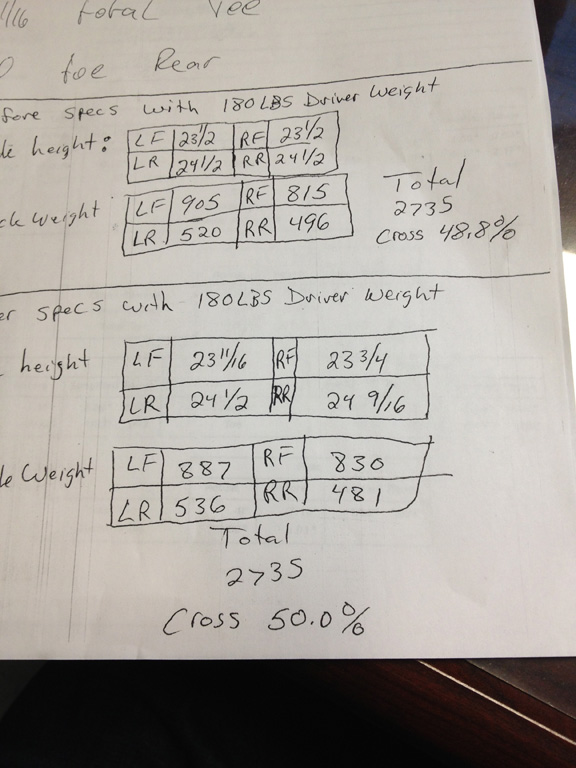 1/16 total Vee
0 toe Rear
fore specs with 180LBS Driver Weight
de height: LF 23 1/2 RF 23 1/2
LR 24 1/2 RR 24 1/2
ck Weight LF 905 RF 815
LR 520 RR 496
Total
2735
Cross 48.8%
er specs with 180LBS Driver Weight
height LF 23 11/16 RF 23 3/4
LR 24 1/2 RR 24 9/16
le Weight LF 887 RF 830
LR 536 RR 481
Total
2735
Cross 50.0%